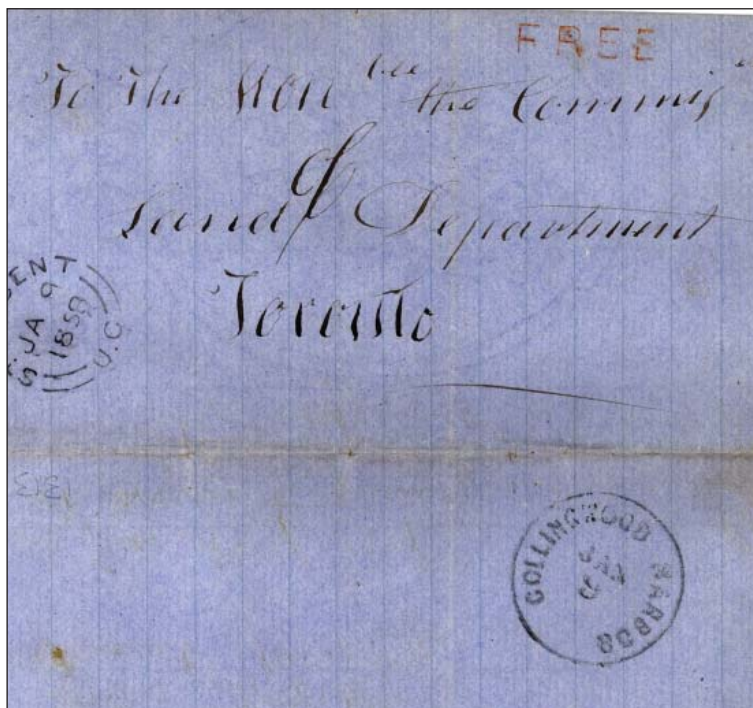 FREE
To The Hon ble the Commis
of
Land Department
Toronto
JA 9
1858
U.C
313
COLLINGWOOD HARBOR
JAN